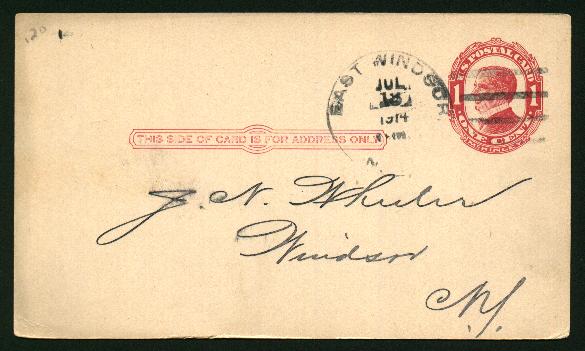 120
EAST WINDSOR
JUL
13
1914
M
N.
U.S. POSTAL CARD
1 1
ONE CENT
THIS SIDE OF CARD IS FOR ADDRESS ONLY
J. N. Wheeler
Windsor
N.Y.